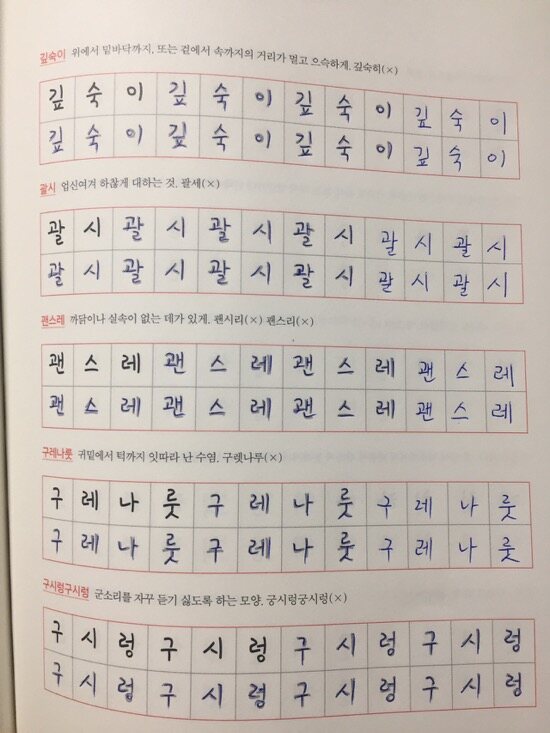 깊숙이 위에서 밑바닥까지. 또는 겉에서 속까지의 거리가 멀고 으슥하게. 깊숙히(×)
깊 숙 이 깊 숙 이 깊 숙 이 깊 숙 이
깊 숙 이 깊 숙 이 깊 숙 이 깊 숙 이
괄시 업신여겨 하찮게 대하는 것. 괄세(×)
괄 시 괄 시 괄 시 괄 시 괄 시 괄 시
괄 시 괄 시 괄 시 괄 시 괄 시 괄 시
괜스레 까닭이나 실속이 없는 데가 있게. 괜시리(×) 괜스리(×)
괜 스 레 괜 스 레 괜 스 레 괜 스 레
괜 스 레 괜 스 레 괜 스 레 괜 스 레
구레나룻 귀밑에서 턱까지 잇따라 난 수염. 구렛나루(×)
구 레 나 룻 구 레 나 룻 구 레 나 룻
구 레 나 룻 구 레 나 룻 구 레 나 룻
구시렁구시렁 군소리를 자꾸 듣기 싫도록 하는 모양. 궁시렁궁시렁(×)
구 시 렁 구 시 렁 구 시 렁 구 시 렁
구 시 렁 구 시 렁 구 시 렁 구 시 렁